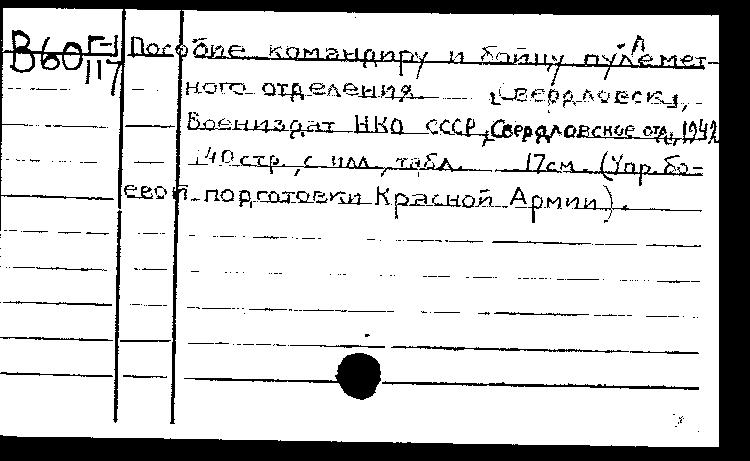 В60 Г-1/117 Пособие командиру и бойцу пулемет-
ного отделения. [Свердловск],
Воениздат НКО СССР, Свердловское отд., 1942
140 стр., с илл., табл. 17см. (Упр. бо-
евой подготовки Красной Армии).